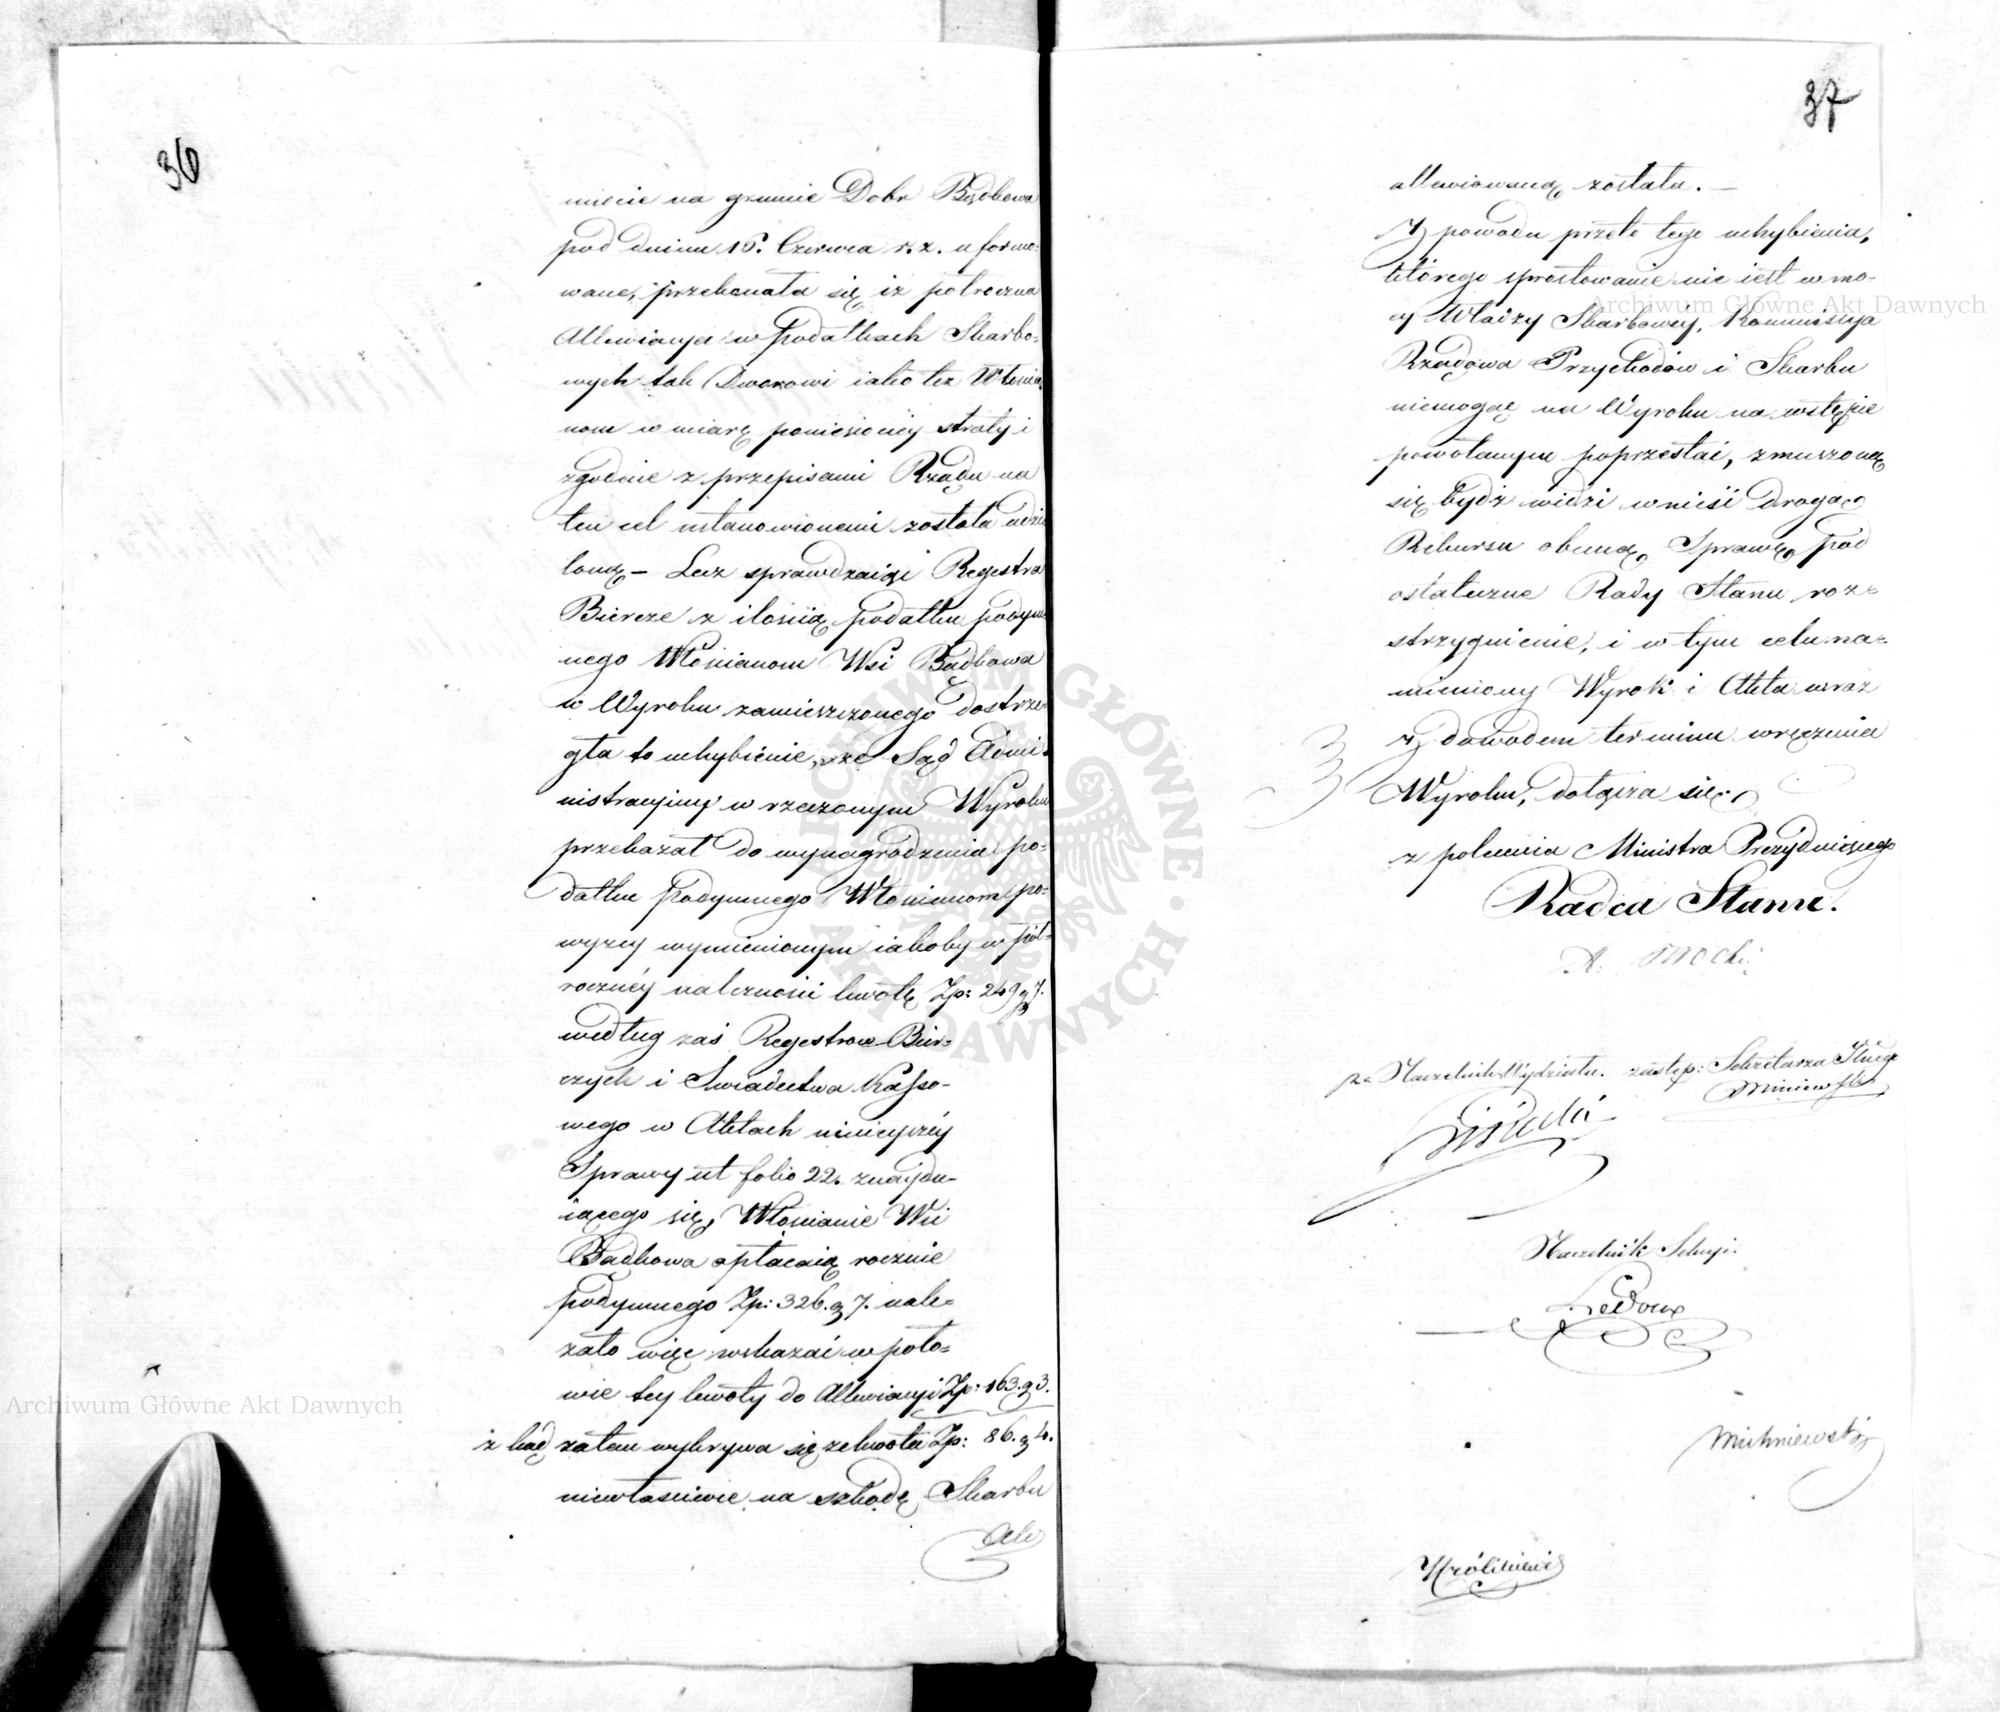 36
miecie na gruncie Dobr Bądkowa
pod dniem 15. Czerwca r. z. uformo-
wane, przekonała się iż półroczna
Allewiacya w podatkach Skarbo-
wych tak Dworowi iako też Włościa-
nom w miarę poniesioney straty i
zgodnie z przepisami Rządu na
ten cel ustanowionemi została udzie
loną – Lecz sprawdzaiąc Regestra
Biercze z ilością podatku podym-
nego Włościanom Wsi Bądkowa
w Wyroku zamieszczonego dostrze-
gła to uchybienie, że Sąd Admi-
nistracyiny w rzeczonym Wyroku
przekazał do wynagrodzenia po-
datku podymnego Włościanom po-
wyżey wymienionym iakoby w pół-
roczney należności kwotę Zp: 249 g 7.
według zaś Regestrow Bier-
czych i Swiadectwa Kasso-
wego w Aktach ninieyszey
Sprawy ut folio 22. znaydu-
iącego się, Włościanie Wsi
Bądkowa opłacaią rocznie
podymnego Zp: 326. g 7. nale-
żało więc wskazać w poło-
wie tey kwoty do Allewiacyi Zp: 163. g 3.
z kąd zatem wykrywa się że kwota Zp: 86. g 4.
niewłaściwie na szkodę Skarbu
alle
37
allewiowaną została. –
Z powodu przeto tego uchybienia,
którego sprostowanie nie iest w mo-
cy Władzy Skarbowey, Kommissya
Rządowa Przychodów i Skarbu
niemogąc na Wyroku na wstępie
powołanym poprzestać, zmuszoną
się bydź widzi wnieść drogą
Rekursu obecną Sprawę pod
ostateczne Rady Stanu roz-
strzygnienie, i w tym celu na-
mieniony Wyrok i Akta wraz
z dowodem terminu wręczenia
Wyroku, dołącza się.
z polecenia Ministra Prezyduiącego
Radca Stanu.
za Naczelnik Wydziału. zastęp: Sekretarza Jlnego
Naczelnik Sekcyi.
Ledoux
Michniewski
Archiwum Główne Akt Dawnych
Archiwum Główne Akt Dawnych
ARCHIWUM GŁÓWNE AKT DAWNYCH